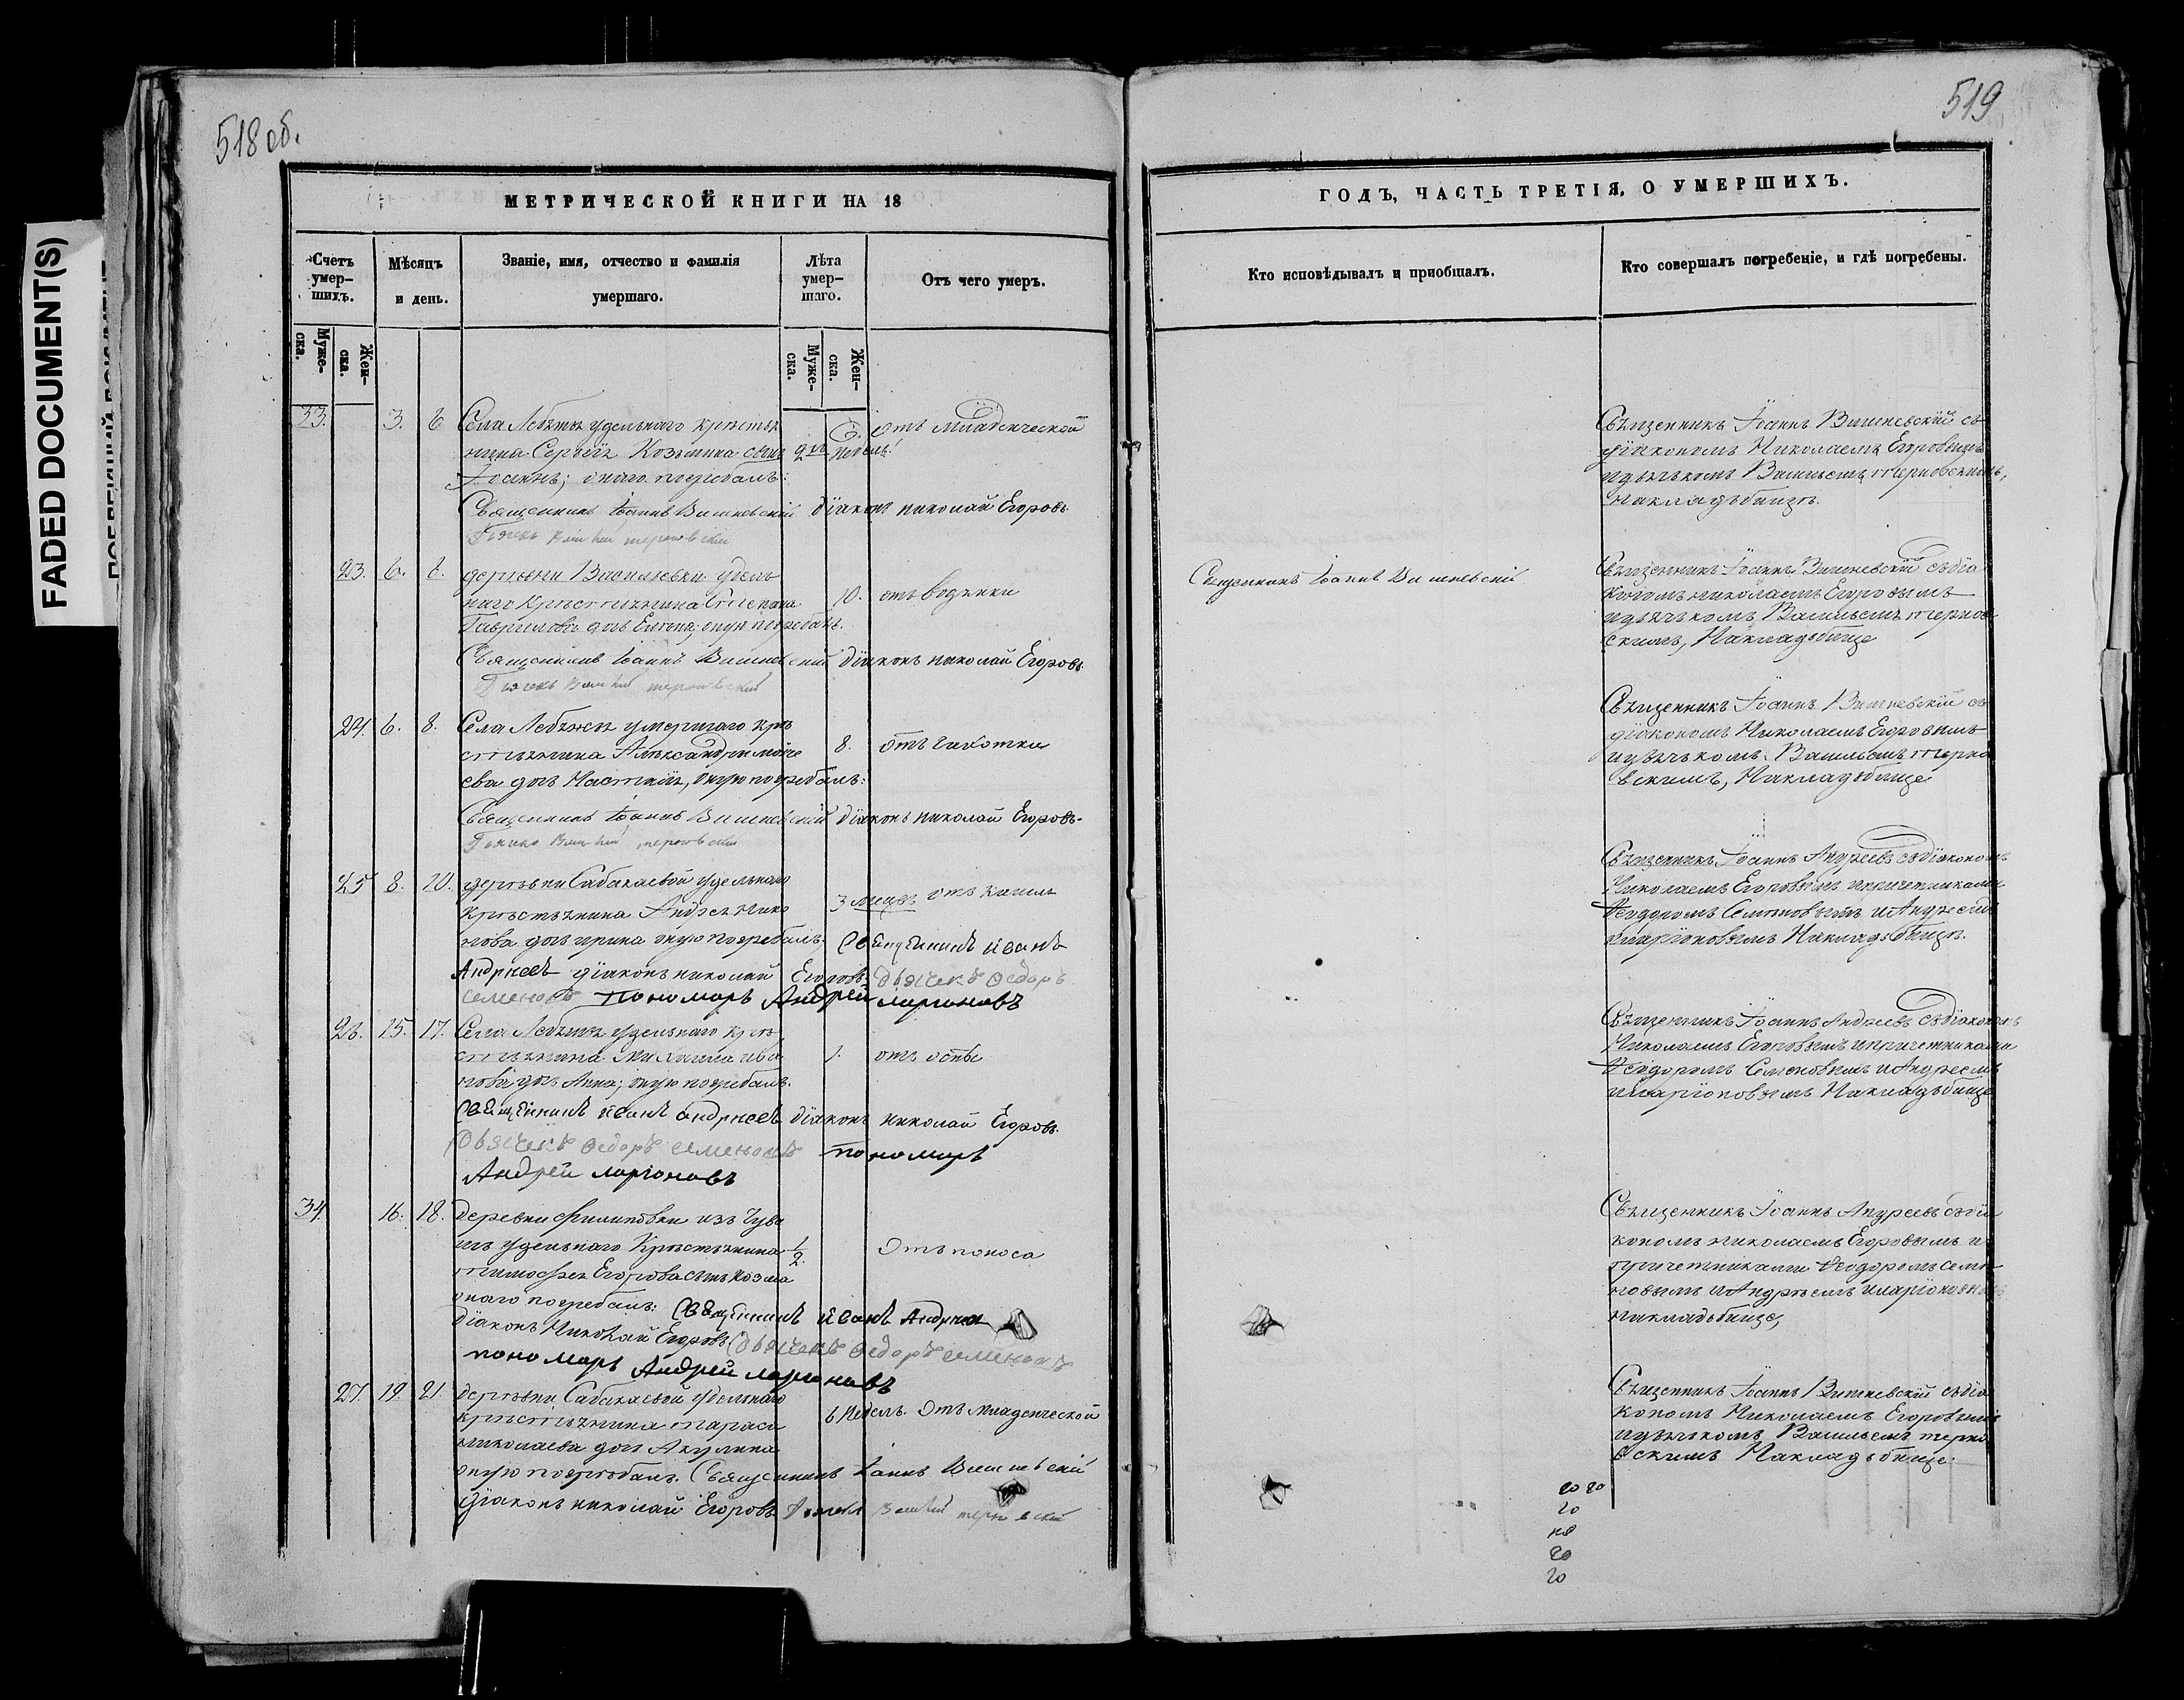 FADED DOCUMENT(S)
518 об.
МЕТРИЧЕСКОЙ КНИГИ НА 18
Счетъ умер-шихъ.
Мѣсяцъ и день.
Званіе, имя, отчество и фамилія умершаго.
Лѣта умер-шаго.
Отъ чего умеръ.
Муже-ска.
Жен-ска.
Муже-ска.
Жен-ска.
33. 3. 6 Села Лебѣжья удельнаго крестья
нина Сергѣя Козьмина сынъ 6. недель отъ младенческой
Іоаннъ; онаго погребалъ:
Священникъ Іоаннъ Вишневскій Діаконъ Николай Егоровъ
23. 6. 8. деревни Васильевки удель
наго Крестьянина Степана 10. отъ водянки
Гаврилова дочь Елена; оную погребалъ.
Священникъ Іоаннъ Вишневскій Діаконъ Николай Егоровъ
24. 6. 8. Села Лебѣжья умершаго кре
стьянина Александра 8. Отъ чихотки
ева дочь Настасія, оную погребалъ:
Священникъ Іоаннъ Вишневскій Діаконъ Николай Егоровъ
25 8. 10. деревни Сабакаевой удельнаго
Крестьянина Андрея 3 месец. отъ кашля
нова дочь Ирина оную погребалъ; Священникъ Иванъ
Андреевъ діаконъ Николай Егоровъ Дьячекъ Ѳедоръ
Семеновъ Пономарь Андрей Ларионовъ
26. 15. 17. Села Лебѣжья удельнаго кре
стьянина Михаила Ива 1. отъ оспы
нова дочь Анна; оную погребалъ.
Священникъ Иванъ Андреевъ Діаконъ Николай Егоровъ
Дьячекъ Ѳедоръ Семеновъ пономарь
Андрей Ларіоновъ
34. 16. 18. Деревни Филиповки изъ Чува
шъ удельнаго Крестьянина 1/2 Отъ поноса
Тимофея Егорова сынъ Козма
онаго погребалъ: Священникъ Иванъ Андреевъ
Діаконъ Николай Егоровъ Дьячекъ Ѳедоръ Семеновъ
пономарь Андрей Ларионовъ
27. 19. 21. деревни Сабакаевой удельнаго
крестьянина Тараса 6 недель. Отъ младенческой
Николаева дочь Акулина
оную погребалъ. Священникъ Іоаннъ Вишневскій
Діаконъ Николай Егоровъ
519
ГОДЪ, ЧАСТЬ ТРЕТІЯ, О УМЕРШИХЪ.
Кто исповѣдывалъ и пріобщалъ.
Кто совершалъ погребеніе, и гдѣ погребены.
Священникъ Іоаннъ Вишневскій съ
діакономъ Николаемъ Егоровымъ
идьячькомъ Васильемъ Терновскимъ,
накладьбище.
Священникъ Іоаннъ Вишневскій
Священникъ Іоаннъ Вишневскій съдіа
кономъ Николаемъ Егоровымъ
идьячькомъ Васильемъ Тернов
скимъ, Накладьбище
Священникъ Іоаннъ Вишневскій съ
діакономъ Николаемъ Егоровымъ
идьячькомъ Васильемъ Терно
вскимъ, Накладьбище
Священникъ Іоаннъ Андреевъ съдіакономъ
Николаемъ Егоровымъ ипричетниками
Ѳеодоромъ Семеновымъ иАндреемъ
иларіоновымъ Накладьбище.
Священникъ Іоаннъ Андреевъ съдіакономъ
Николаемъ Егоровымъ ипричетниками
Ѳеодоромъ Семеновымъ иАндреемъ
иларіоновымъ Накладьбище
Священникъ Іоаннъ Андреевъ съдіа
кономъ Николаемъ Егоровымъ и
причетниками Ѳеодоромъ Семе
новымъ иАндреемъ иларіоновымъ
накладьбище,
Священникъ Іоаннъ Вишневскій съдіа
кономъ Николаемъ Егоровымъ
идьячькомъ Васильемъ Терно
вскимъ Накладьбище.